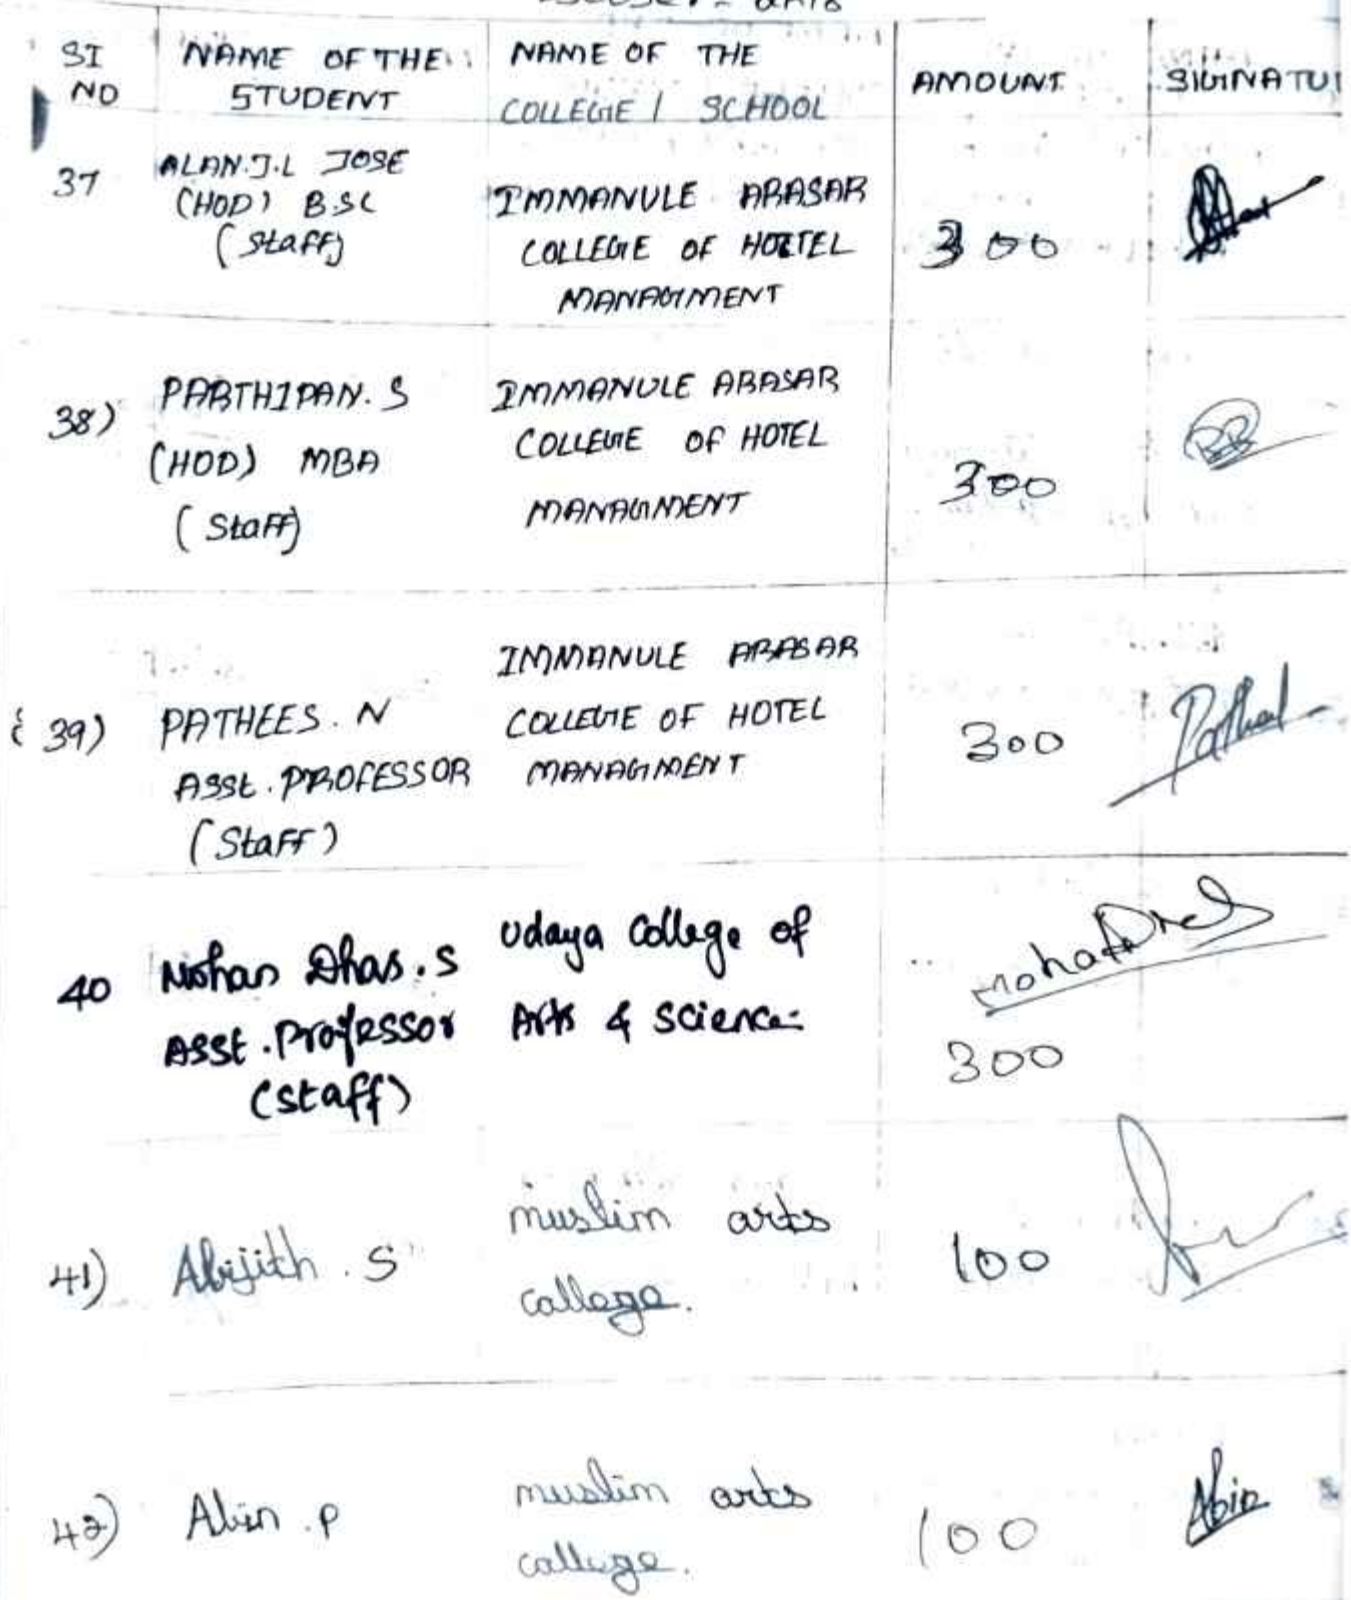 SI NO NAME OF THE STUDENT NAME OF THE COLLEGE / SCHOOL AMOUNT SIGINATU
37 ALAN.J.L JOSE
(HOD) BSC
(Staff)
IMMANULE ARASAR
COLLEGE OF HOTEL
MANAGIMENT
300
38) PARTHIPAN. S
(HOD) MBA
(Staff)
IMMANULE ARASAR
COLLEGE OF HOTEL
MANAGMENT
300
39) PATHEES. N
ASSt. PROFESSOR
(Staff)
IMMANULE ARASAR
COLLEGE OF HOTEL
MANAGIMENT
300
40 Mohan Dhas. S
Asst. Professor
(staff)
Udaya College of
Arts & Science
300
41) Abijith. S
muslim arts
college.
100
42) Abin. P
muslim arts
college.
100
Abin